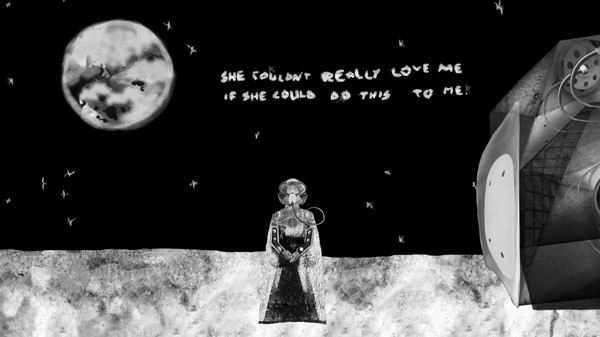 SHE COULDNT REALLY LOVE ME
IF SHE COULD DO THIS TO ME.